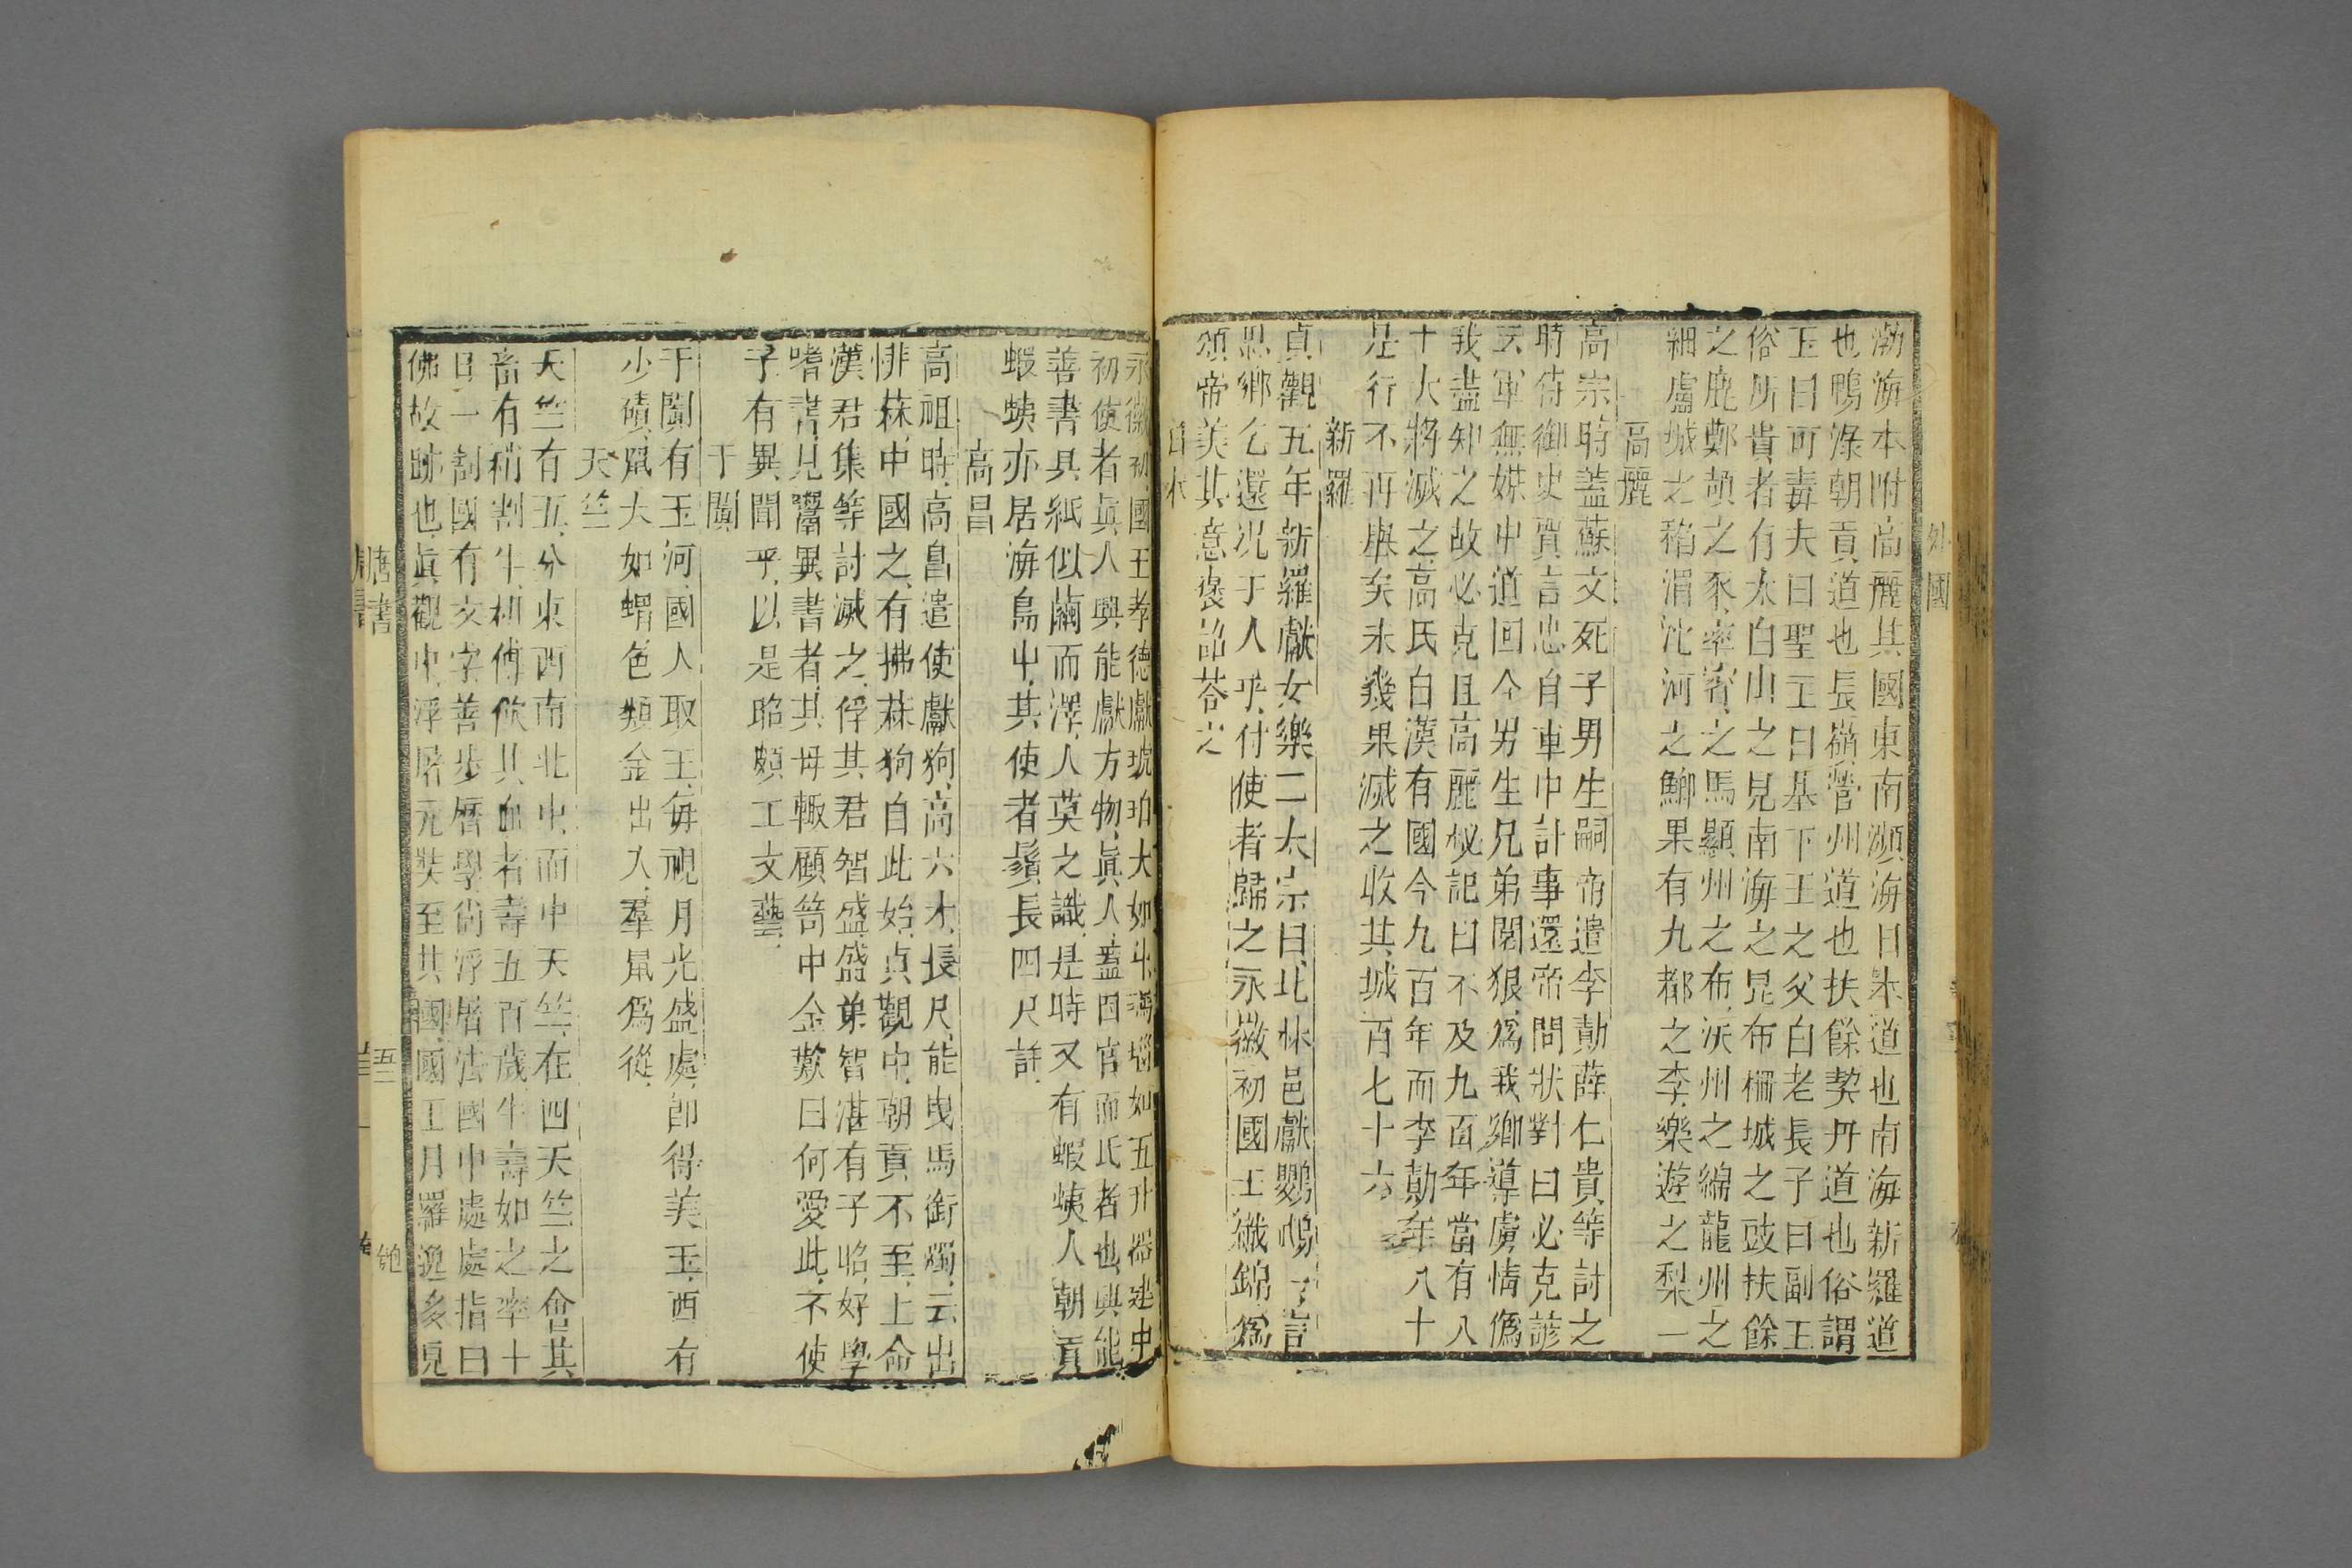 外國
渤海本附高麗其國東南瀕海日本道也南海新羅道
也鴨淥朝貢道也長嶺營州道也扶餘契丹道也俗謂
王曰可毒夫曰聖王曰基下王之父曰老長子曰副王
俗所貴者有太白山之兎南海之昆布柵城之豉扶餘
之鹿鄭頡之豕率賓之馬顯州之布沃州之綿龍州之
紬盧城之稻湄沱河之鯽果有九都之李樂遊之梨一
高麗
高宗時蓋蘇文死子男生嗣帝遣李勣薛仁貴等討之
時侍御史賈言忠自軍中計事還帝問狀對曰必克諺
云軍無媒中道回今男生兄弟鬩狠爲我鄉導虜情僞
我盡知之故必克且高麗秘記曰不及九百年當有八
十大將滅之高氏自漢有國今九百年而李勣年八十
是行不再舉矣未幾果滅之收其城百七十六
新羅
貞觀五年新羅獻女樂二太宗曰北林邑獻鸚鵡言
思鄉乞還況于人乎付使者歸之永徽初國王織錦爲
頌帝美其意褒詔荅之
日本
永徽初國王孝德獻琥珀大如斗瑪瑙如五升器建中
初使者眞人興能獻方物眞人蓋因官而氏者也興能
善書其紙似繭而澤人莫之識是時又有蝦蛦人朝貢
蝦蛦亦居海島中其使者鬚長四尺許
高昌
高祖時高昌遣使獻狗高六寸長尺能曳馬銜燭云出
悱菻中國之有拂菻狗自此始貞觀中朝貢不至上命
漢君集等討滅之俘其君智盛盛弟智湛有子昭好學
嗜書見鬻異書者其母輙顧笥中金歎曰何愛此不使
子有異聞乎以是昭頗工文藝
于闐
于闐有玉河國人取玉每視月光盛處卽得美玉西有
少磧鼠大如蝟色類金出入羣鼠爲從
天竺
天竺有五分東西南北中而中天竺在四天竺之會其
畜有稍割牛相傳飲其血者壽五百歲牛壽如之率十
日一割國有文字善步曆學尙浮屠法國中處處指曰
佛故跡也眞觀中浮屠元奘至其國國王尸羅逸多見
唐書
五二